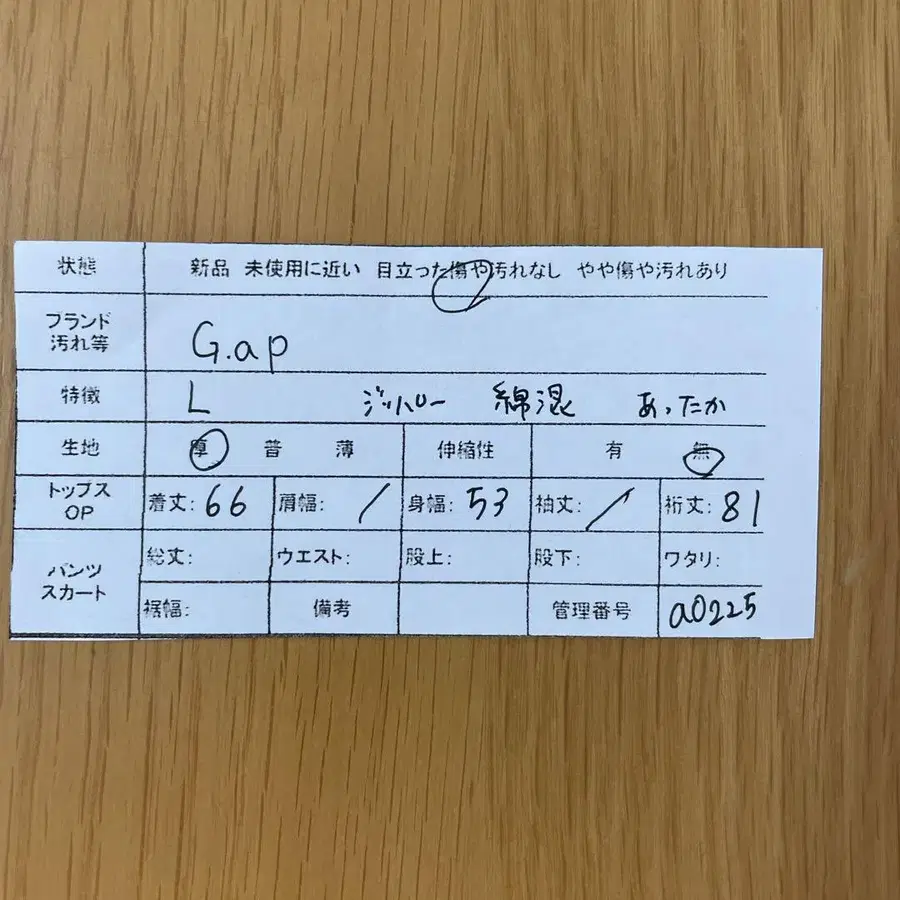 状態 新品 未使用に近い 目立った傷や汚れなし やや傷や汚れあり
ブランド
汚れ等
G.ap
特徴 L ジッパー 綿混 あったか
生地 厚 普 薄 伸縮性 有 無
トップス
OP
着丈: 66 肩幅: / 身幅: 53 袖丈: / 裄丈: 81
パンツ
スカート
総丈: ウエスト: 股上: 股下: ワタリ:
裾幅: 備考 管理番号 a0225